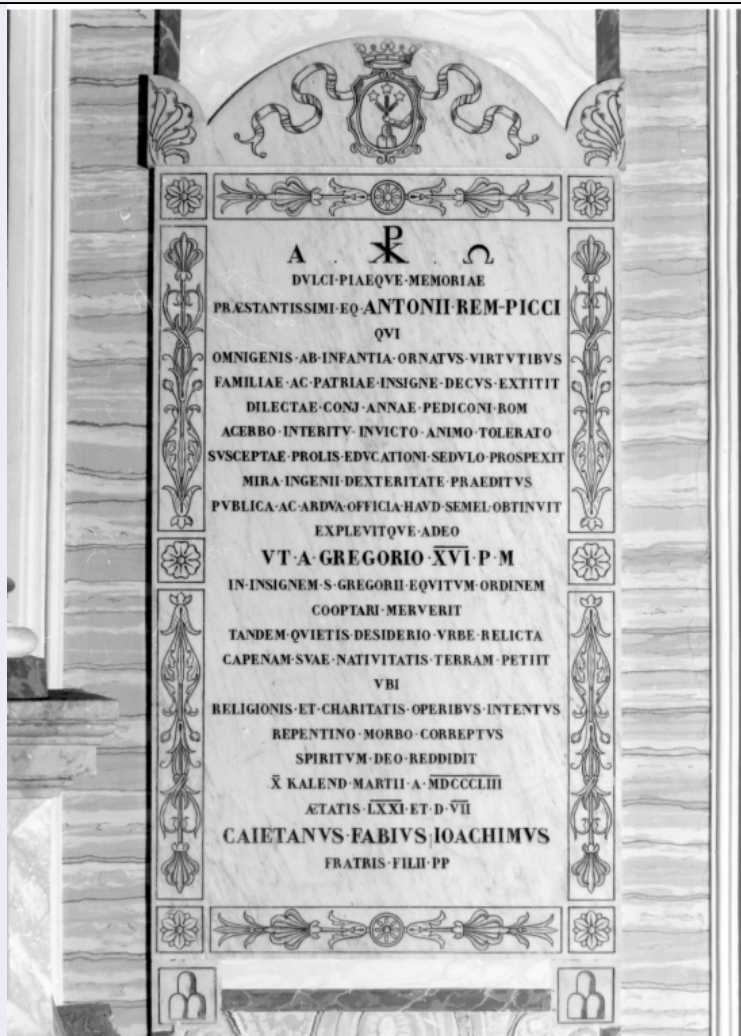 A . ☧ . Ω
DVLCI·PIAEQVE·MEMORIAE
PRÆSTANTISSIMI·EQ·ANTONII·REM-PICCI
QVI
OMNIGENIS·AB·INFANTIA·ORNATVS·VIRTVTIBVS
FAMILIAE·AC·PATRIAE·INSIGNE·DECVS·EXTITIT
DILECTAE·CONJ·ANNAE·PEDICONI·ROM
ACERBO·INTERITV·INVICTO·ANIMO·TOLERATO
SVSCEPTAE·PROLIS·EDVCATIONI·SEDVLO·PROSPEXIT
MIRA·INGENII·DEXTERITATE·PRAEDITVS
PVBLICA·AC·ARDVA·OFFICIA·HAVD·SEMEL·OBTINVIT
EXPLEVITQVE·ADEO
VT·A·GREGORIO·X̅V̅I̅·P·M
IN·INSIGNEM·S·GREGORII·EQVITVM·ORDINEM
COOPTARI·MERVERIT
TANDEM·QVIETIS·DESIDERIO·VRBE·RELICTA
CAPENAM·SVAE·NATIVITATIS·TERRAM·PETIIT
VBI
RELIGIONIS·ET·CHARITATIS·OPERIBVS·INTENTVS
REPENTINO·MORBO·CORREPTVS
SPIRITVM·DEO·REDDIDIT
X̅ KALEND·MARTII·A·M̅D̅C̅C̅C̅L̅I̅I̅I̅
ÆTATIS·L̅X̅X̅I̅·ET·D·V̅I̅I̅
CAIETANVS·FABIVS·IOACHIMVS
FRATRIS·FILII·PP